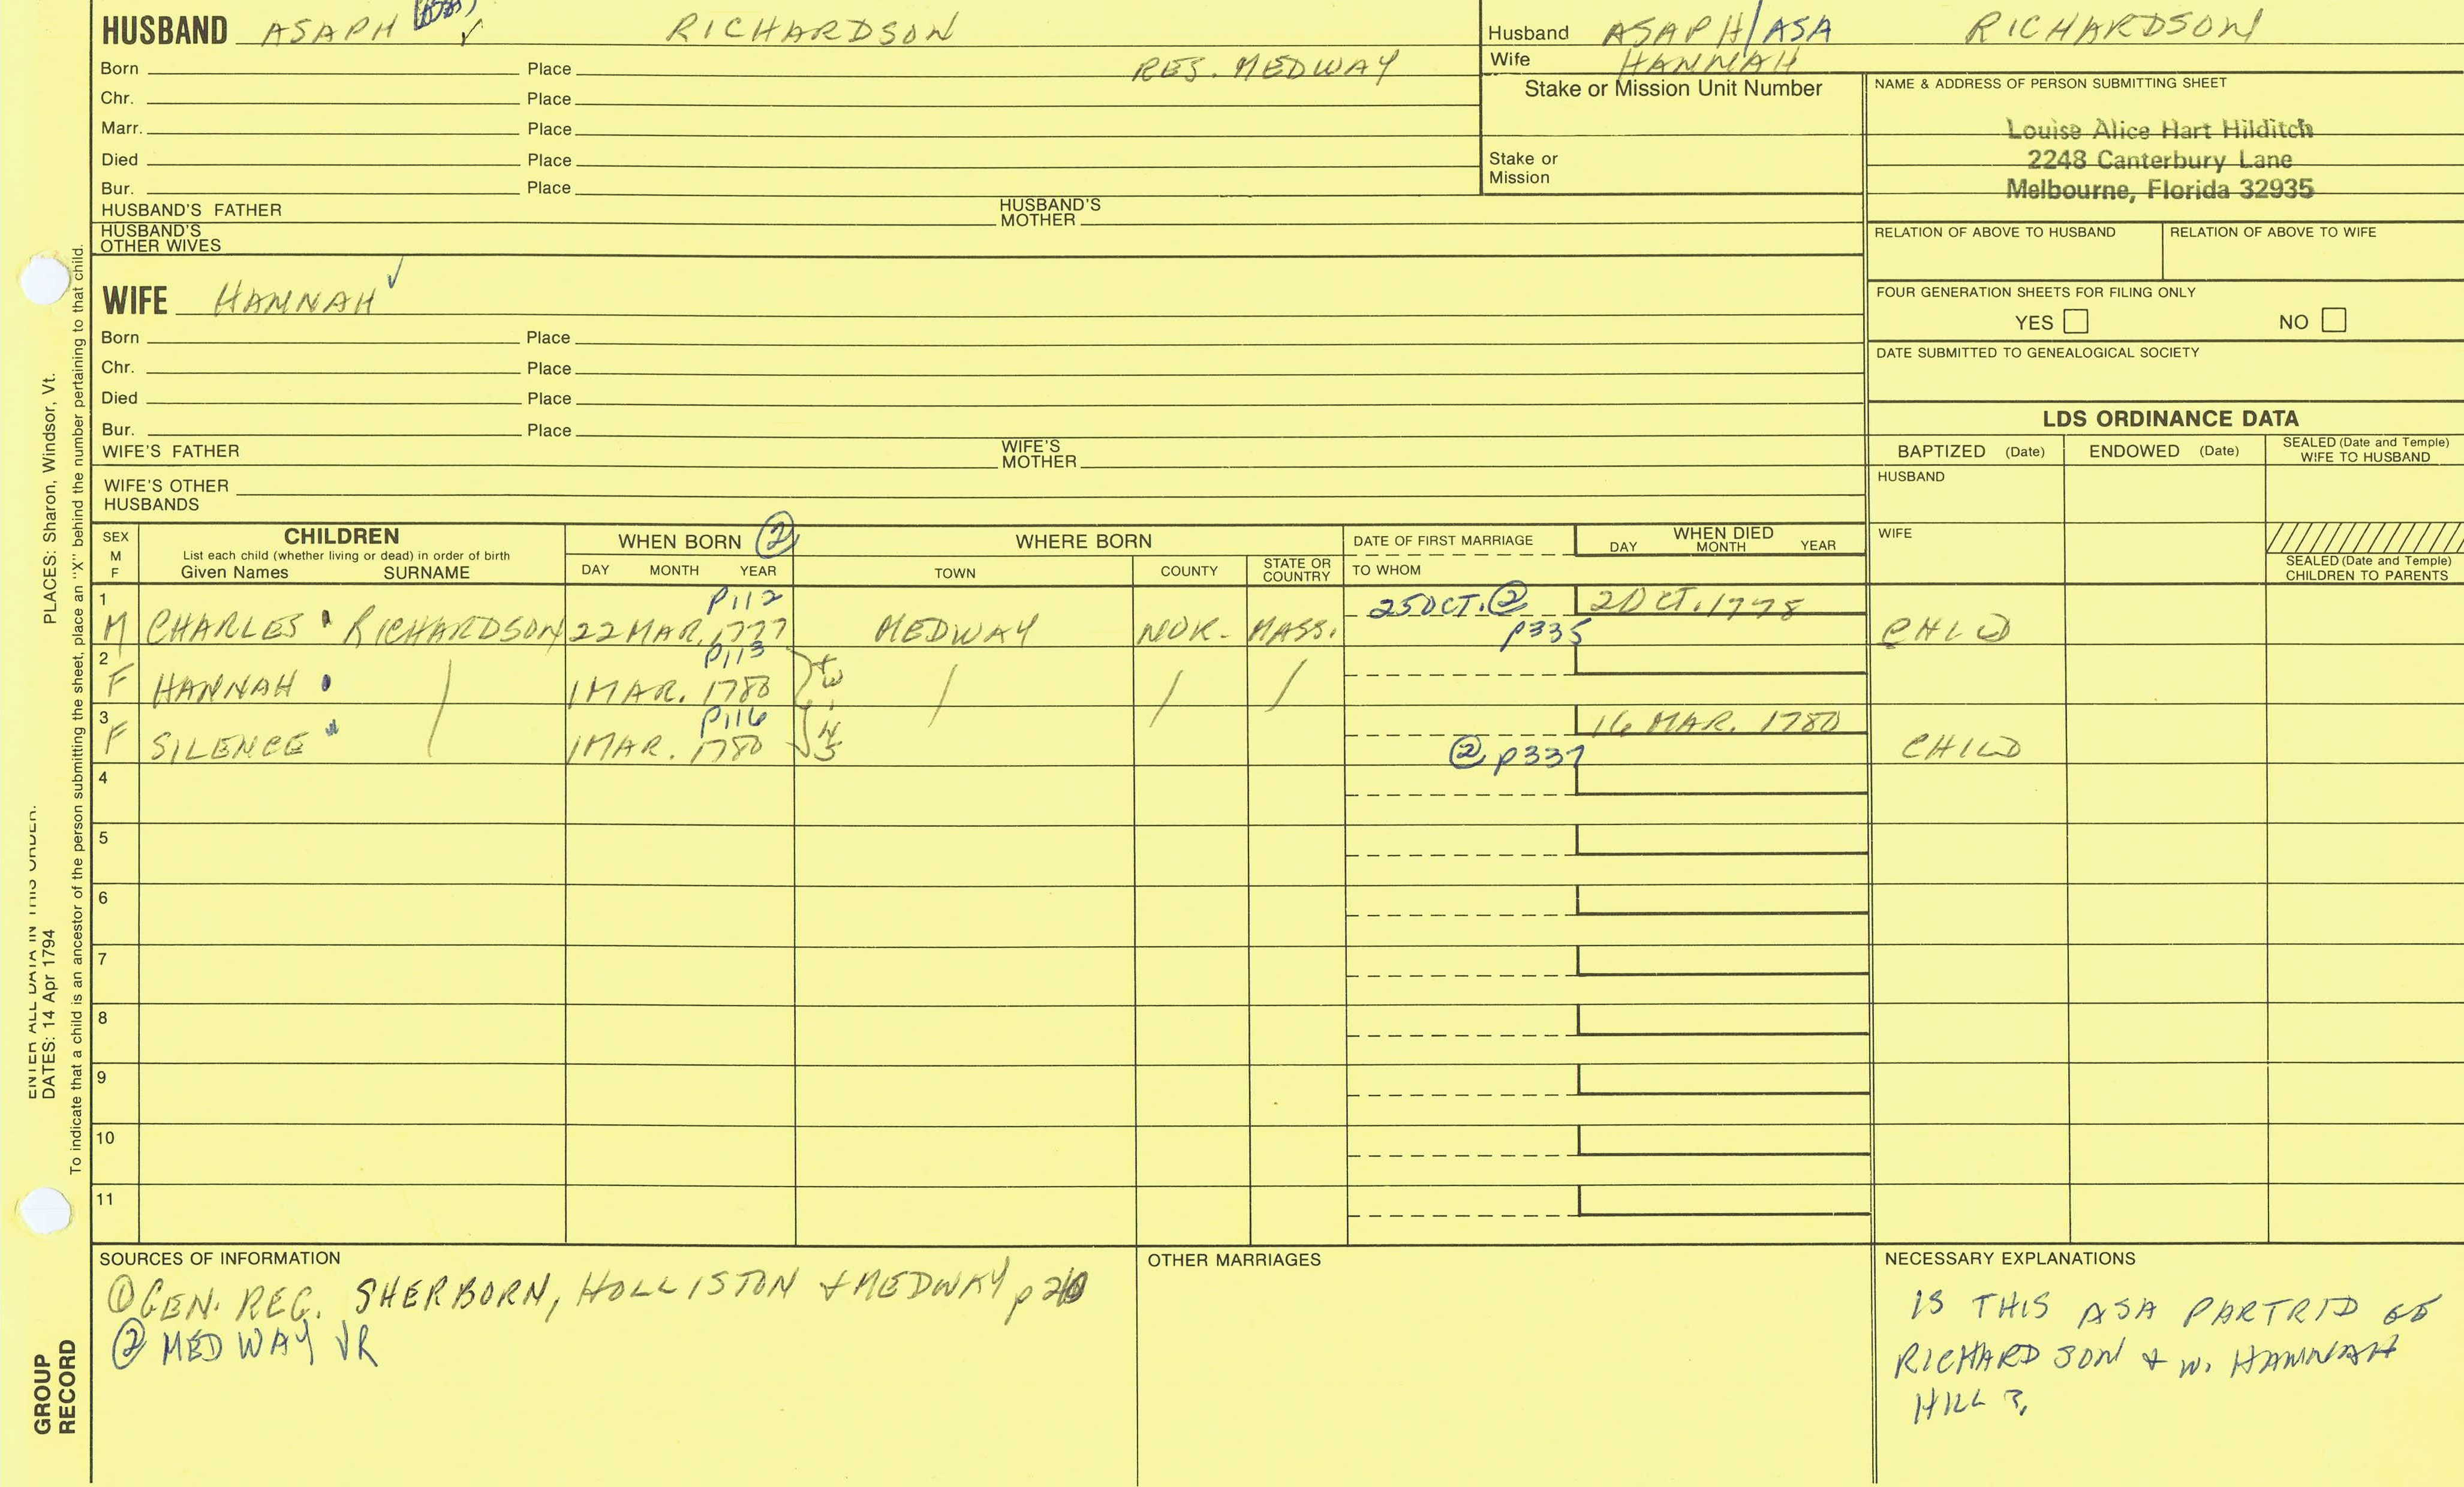 HUSBAND ASAPH (ASA) ✓ RICHARDSON
RES. MEDWAY
Born Place
Chr. Place
Marr. Place
Died Place
Bur. Place
HUSBAND'S FATHER HUSBAND'S MOTHER
HUSBAND'S OTHER WIVES
Husband ASAPH/ASA RICHARDSON
Wife HANNAH
Stake or Mission Unit Number
Stake or Mission
NAME & ADDRESS OF PERSON SUBMITTING SHEET
Louise Alice Hart Hilditch
2248 Canterbury Lane
Melbourne, Florida 32935
RELATION OF ABOVE TO HUSBAND RELATION OF ABOVE TO WIFE
FOUR GENERATION SHEETS FOR FILING ONLY
YES NO
DATE SUBMITTED TO GENEALOGICAL SOCIETY
WIFE HANNAH ✓
Born Place
Chr. Place
Died Place
Bur. Place
WIFE'S FATHER WIFE'S MOTHER
WIFE'S OTHER HUSBANDS
LDS ORDINANCE DATA
BAPTIZED (Date) ENDOWED (Date) SEALED (Date and Temple) WIFE TO HUSBAND
HUSBAND
WIFE
SEALED (Date and Temple) CHILDREN TO PARENTS
SEX M F
CHILDREN
List each child (whether living or dead) in order of birth
Given Names SURNAME
WHEN BORN ②
DAY MONTH YEAR
WHERE BORN
TOWN COUNTY STATE OR COUNTRY
DATE OF FIRST MARRIAGE
TO WHOM
WHEN DIED
DAY MONTH YEAR
1 P112 25 OCT. ② 2 OCT. 1778
M CHARLES RICHARDSON 22 MAR. 1777 MEDWAY NOR. MASS. p335 CHLD
2 P113
F HANNAH / 1 MAR. 1780 / / /
TWINS
3 P116 16 MAR. 1780
F SILENCE 1 MAR. 1780 ② p337 CHILD
4
5
6
7
8
9
10
11
SOURCES OF INFORMATION
① GEN. REG. SHERBORN, HOLLISTON + MEDWAY
② MEDWAY VR
OTHER MARRIAGES
NECESSARY EXPLANATIONS
IS THIS ASA PARTRIDGE
RICHARDSON + W. HANNAH
HILL?
PLACES: Sharon, Windsor, Vt.
ENTER ALL DATA IN THIS ORDER:
DATES: 14 Apr 1794
To indicate that a child is an ancestor of the person submitting the sheet, place an "X" behind the number pertaining to that child.
GROUP
RECORD